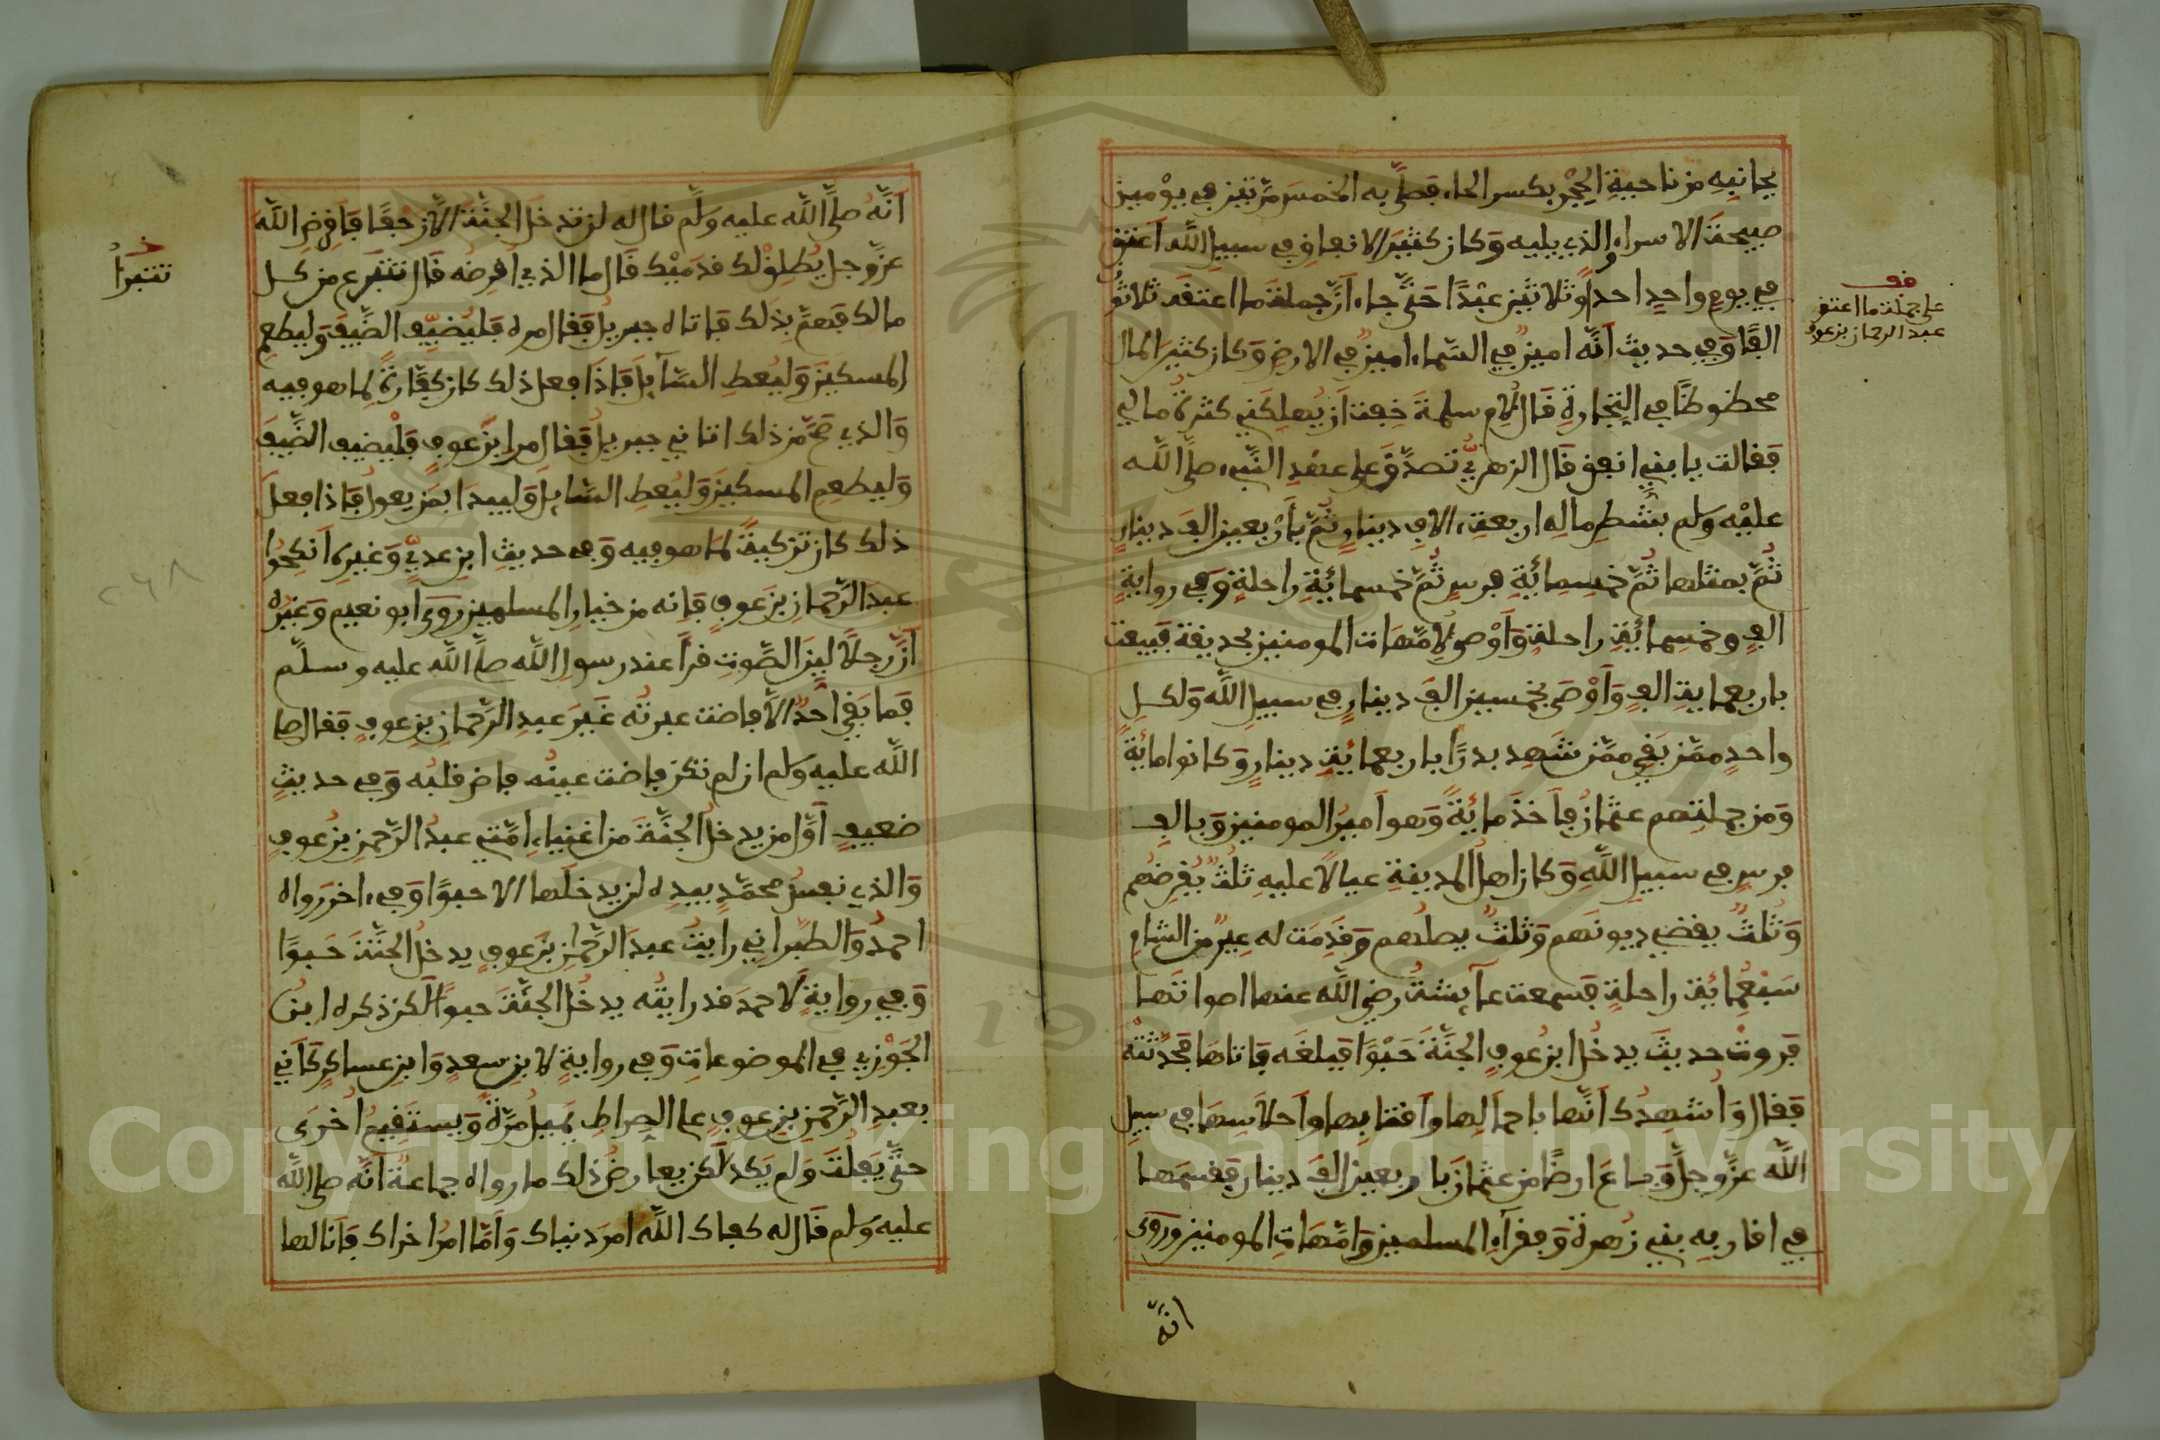 بجانبه من ناحية الحِجْر بكسر الحاء فصلّى به الخمس مرّتين في يومين
صبيحة الاسراء والذي يليه وكان كثير الانفاق في سبيل الله اعتق
في يوم واحد احدا وثلاثين عبدا حتّى جاء انّ جملة ما اعتقه ثلاثون
الفا وفي حديث انّه امين في السّماء امين في الارض وكان كثير المال
محظوظا في التجارة قال لام سلمة خفت ان يهلكني كثرة مالي
فقالت يا بني انفق قال الزهريّ تصدّق على عهد النبيّ صلّى اللّه
عليه وسلم بشطر ماله اربعة الاف دينار ثمّ بأربعين الف دينار
ثمّ بمثلها ثمّ خمسمائة فرس ثمّ خمسمائة راحلة وفي رواية
الف وخمسمائة راحلة وأوصى لامّهات المومنين بحديقة فبيعت
باربعماية الف وأوصى بخمسين الف دينار في سبيل الله ولكل
واحد ممّن بقي ممّن شهد بدرا باربعمائة دينار وكانوا مائة
ومن جملتهم عثمان فأخذ مائة وهو أمير المومنين وبالف
فرس في سبيل الله وكان اهل المدينة عيالا عليه ثلث يقرضهم
وثلث يقضي ديونهم وثلث يصلهم وقدمت له عير من الشام
سبعمائة راحلة فسمعت عائشة رضي الله عنها اصواتها
فروت حديث يدخل ابن عوف الجنّة حبوا فبلغه فاتاها فحدّثته
فقال وأشهدك أنّها باحمالها وأقتابها وأحلاسها في سبيل
الله عزّ وجلّ وباع ارضا من عثمان باربعين الف دينار فقسمها
في اقاربه بني زهرة وفقراء المسلمين وامّهات المومنين وروى
انّه
على جملة ما اعتق
عبد الرحمان بن عوف
أنّه صلّى الله عليه وسلّم قال له لن تدخل الجنّة الّا زحفا فأقرض اللّه
عزّ وجل يطلق لك قدميك قال ما الذي اقرضه قال تتبرع من كل
مالك فهمّ بذلك فاتاه جبريل فقال مره فليضيّف الضّيف وليطعم
المسكين وليعط السّآيل فاذا فعل ذلك كان كفّارة لما هو فيه
والذي صحّ من ذلك اتاني جبريل فقال مر ابن عوف فليضيف الضّيف
وليطعم المسكين وليعط السّايل وليبدا بمن يعول فاذا فعل
ذلك كان تزكية لما هو فيه وفي حديث ابن عديّ وغيره انكحوا
عبد الرّحمان بن عوف فانه من خيار المسلمين روى ابو نعيم وغيره
أنّ رجلا ليّن الصّوت قرأ عند رسول اللّه صلّى اللّه عليه وسلّم
فما بقي احدٌ الّا فاضت عبرته غير عبد الرّحمان بن عوف فقال صلى
اللّه عليه وسلم ان لم تكن فاضت عينه فاض قلبه وفي حديث
ضعيف أوّل من يدخل الجنّة من اغنياء امّتي عبد الرّحمن بن عوف
والذي نفس محمّد بيده لن يدخلها الا حبوا وفي اخر رواه
احمد والطبراني رايت عبد الرّحمن بن عوف يدخل الجنّة حبوا
وفي رواية لاحمد قد رايته يدخل الجنّة حبوا لكن ذكره ابن
الجوزي في الموضوعات وفي رواية لابن سعد وابن عساكر كأني
بعبد الرّحمن بن عوف على الصراط يميل مرّة ويستقيم أخرى
حتّى يفلت ولم يكد لكن يعارض ذلك ما رواه جماعة أنّه صلى اللّه
عليه وسلم قال له كفاك اللّه امر دنياك وأمّا امر اخراك فأنا لها